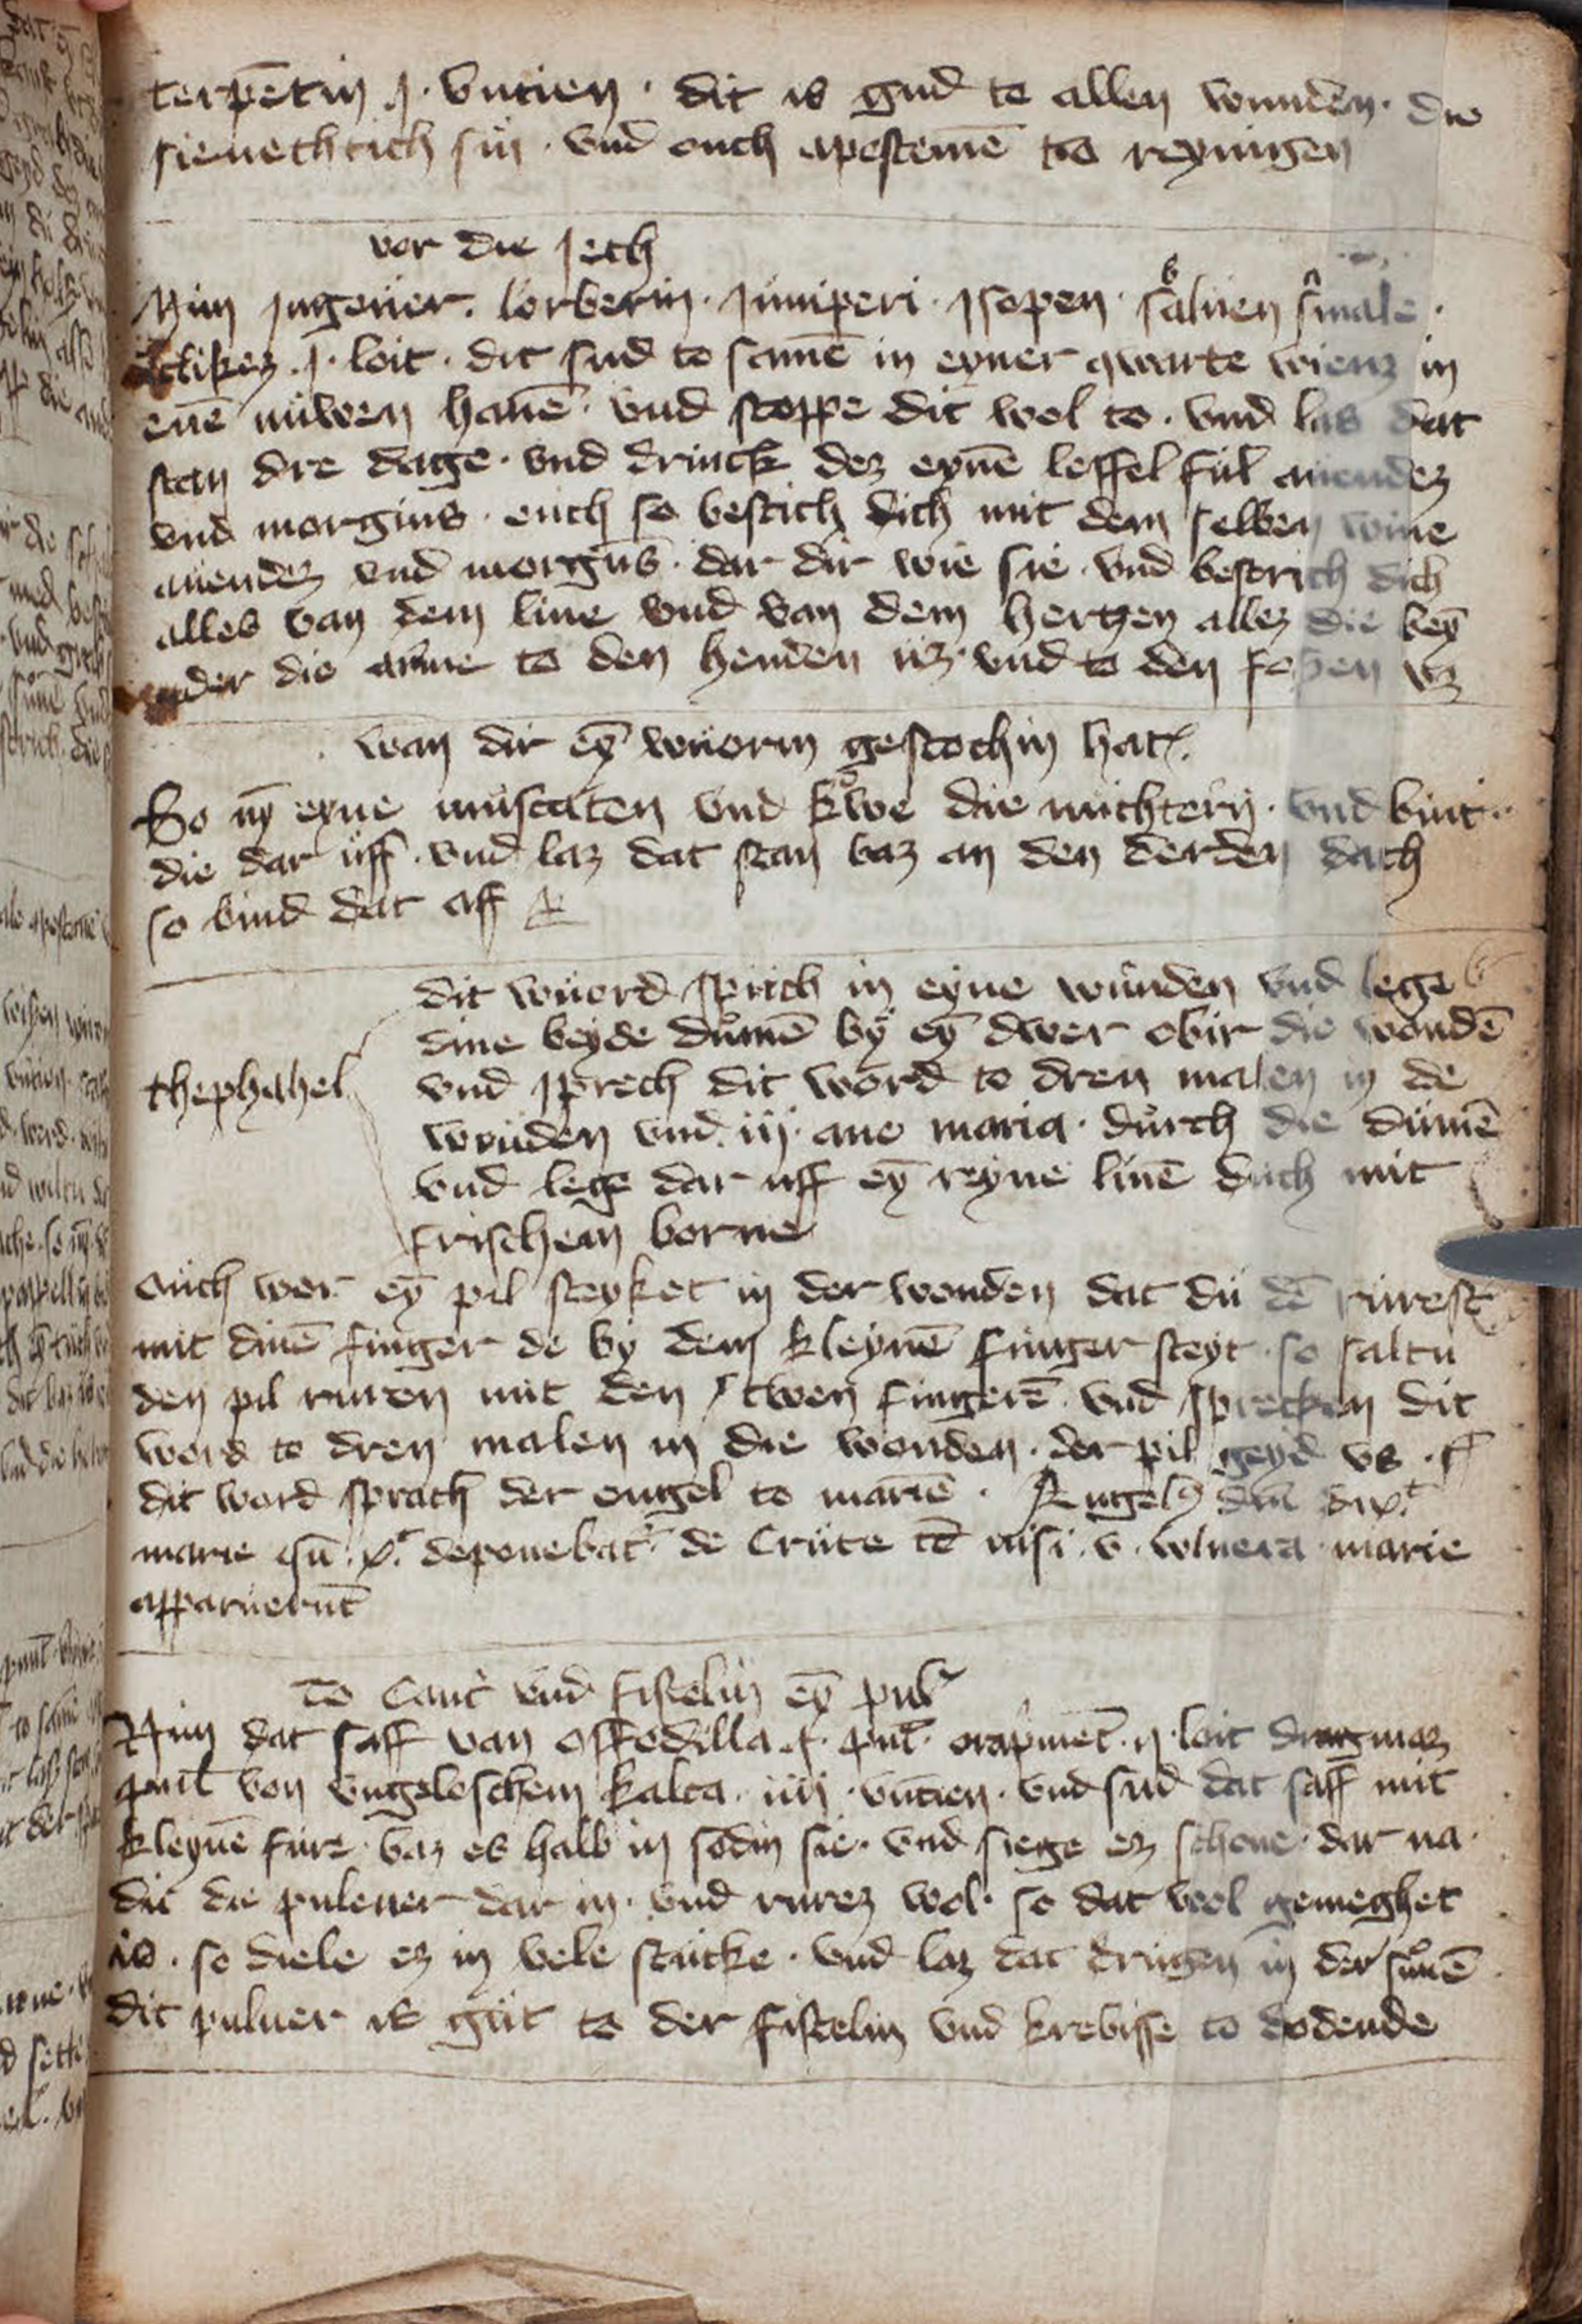 terpētin j · vncien · dit is gud to allen wunden · die
sienechtich sin · vnd ouch apostemē to reyningen
vor die Jech
Nim Jngeuer · lorberin · Juniperi · Jsopen · saluen smale ·
J · loit · dit sud to samē in eyner qwarte wienz in
enē nuwen hauē · vnd stoppe dit wol to · vnd las dat
stan dre dage · vnd drinck dez eynē leffel ful auendez
vnd morgins · ouch so bestich dich mit dem selben wine
auendez vnd morgens · dar dir wie sie · vnd bestrich dich
alles van dem liue vnd van dem hertzen allez die beȳ
nder die arme to den henden uz · vnd to den fossen vz
wan dir eȳ wuorm gestochin hat
So nȳ eyne muscaten vnd kowe die nuchtern · vnd bint
die dar uff · vnd laz dat stan baz an den derden dach
so bind dat aff
dit wuord sprich in eyne wunden vnd lege
dine beyde dumē by eȳ dwer obir die wondē
thephahel vnd sprech dit word to dren malen in de
wunden vnd iij aue maria · durch die dumē
vnd lege dar uff eȳ reyne linē duch mit
frischem borne
Ouch wer eȳ pil steyket in der wonden dat du dē rurest
mit dinē finger de by dem kleynē finger steyt · so saltu
den pil ruren mit den twen fingerē · vnd sprecken dit
word to dren malen in die wonden · der pil geyd vs ·
dit word sprach der engel to mariē · Angelꝰ dnī dix͛
marie deponebat͛ de Cruce tē nisi · v · wlnera marie
apparuerūt
To Canc͛ vnd fistelin eȳ pulꝰ
Nim dat saff van affodilla · punt · orapmēt · ij · loit
punt von vngeloschem kalca · iiij · vncien · vnd sud dat saff mit
kleynē fure · baz es halb in sodin sie · vnd siege ez schone · dar na
die die puluer dar in · vnd rurez wol · so dat wol gemeghet
is · so diele ez in vele stucke · vnd laz dat drugen in der sunē
dit puluer is gut to der fistelin vnd krebisse to dodende